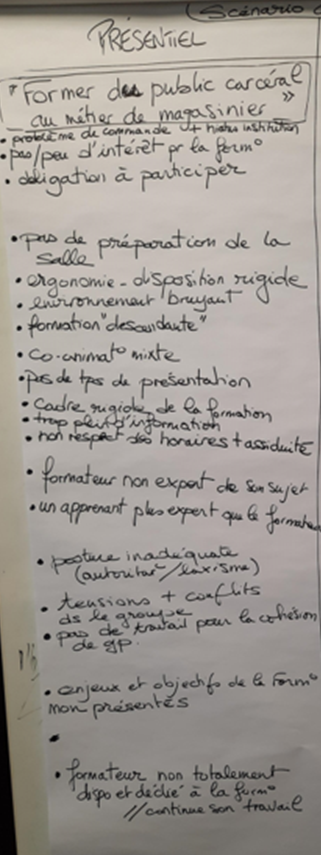 (Scénario
PRÉSENTIEL
"Former des public carcéral
au métier de magasinier"
• problème de commande institution
• pas/peu d'intérêt pr la form°
• obligation à participer
• pas de préparation de la
salle
• ergonomie - disposition rigide
• environnement bruyant
• formation "descendante"
• co-animat° mixte
• pas de tps de présentation
• cadre rigide de la formation
• trop plein d'information
• non respect des horaires + assiduité
• formateur non expert de son sujet
• un apprenant plus expert que le formateur
• posture inadéquate
(autoritar°/laxisme)
• tensions + conflits
ds le groupe
• pas de travail pour la cohésion
de gp.
• enjeux et objectifs de la form°
non présentés
•
• formateur non totalement
dispo et dédié à la form°
// continue son travail